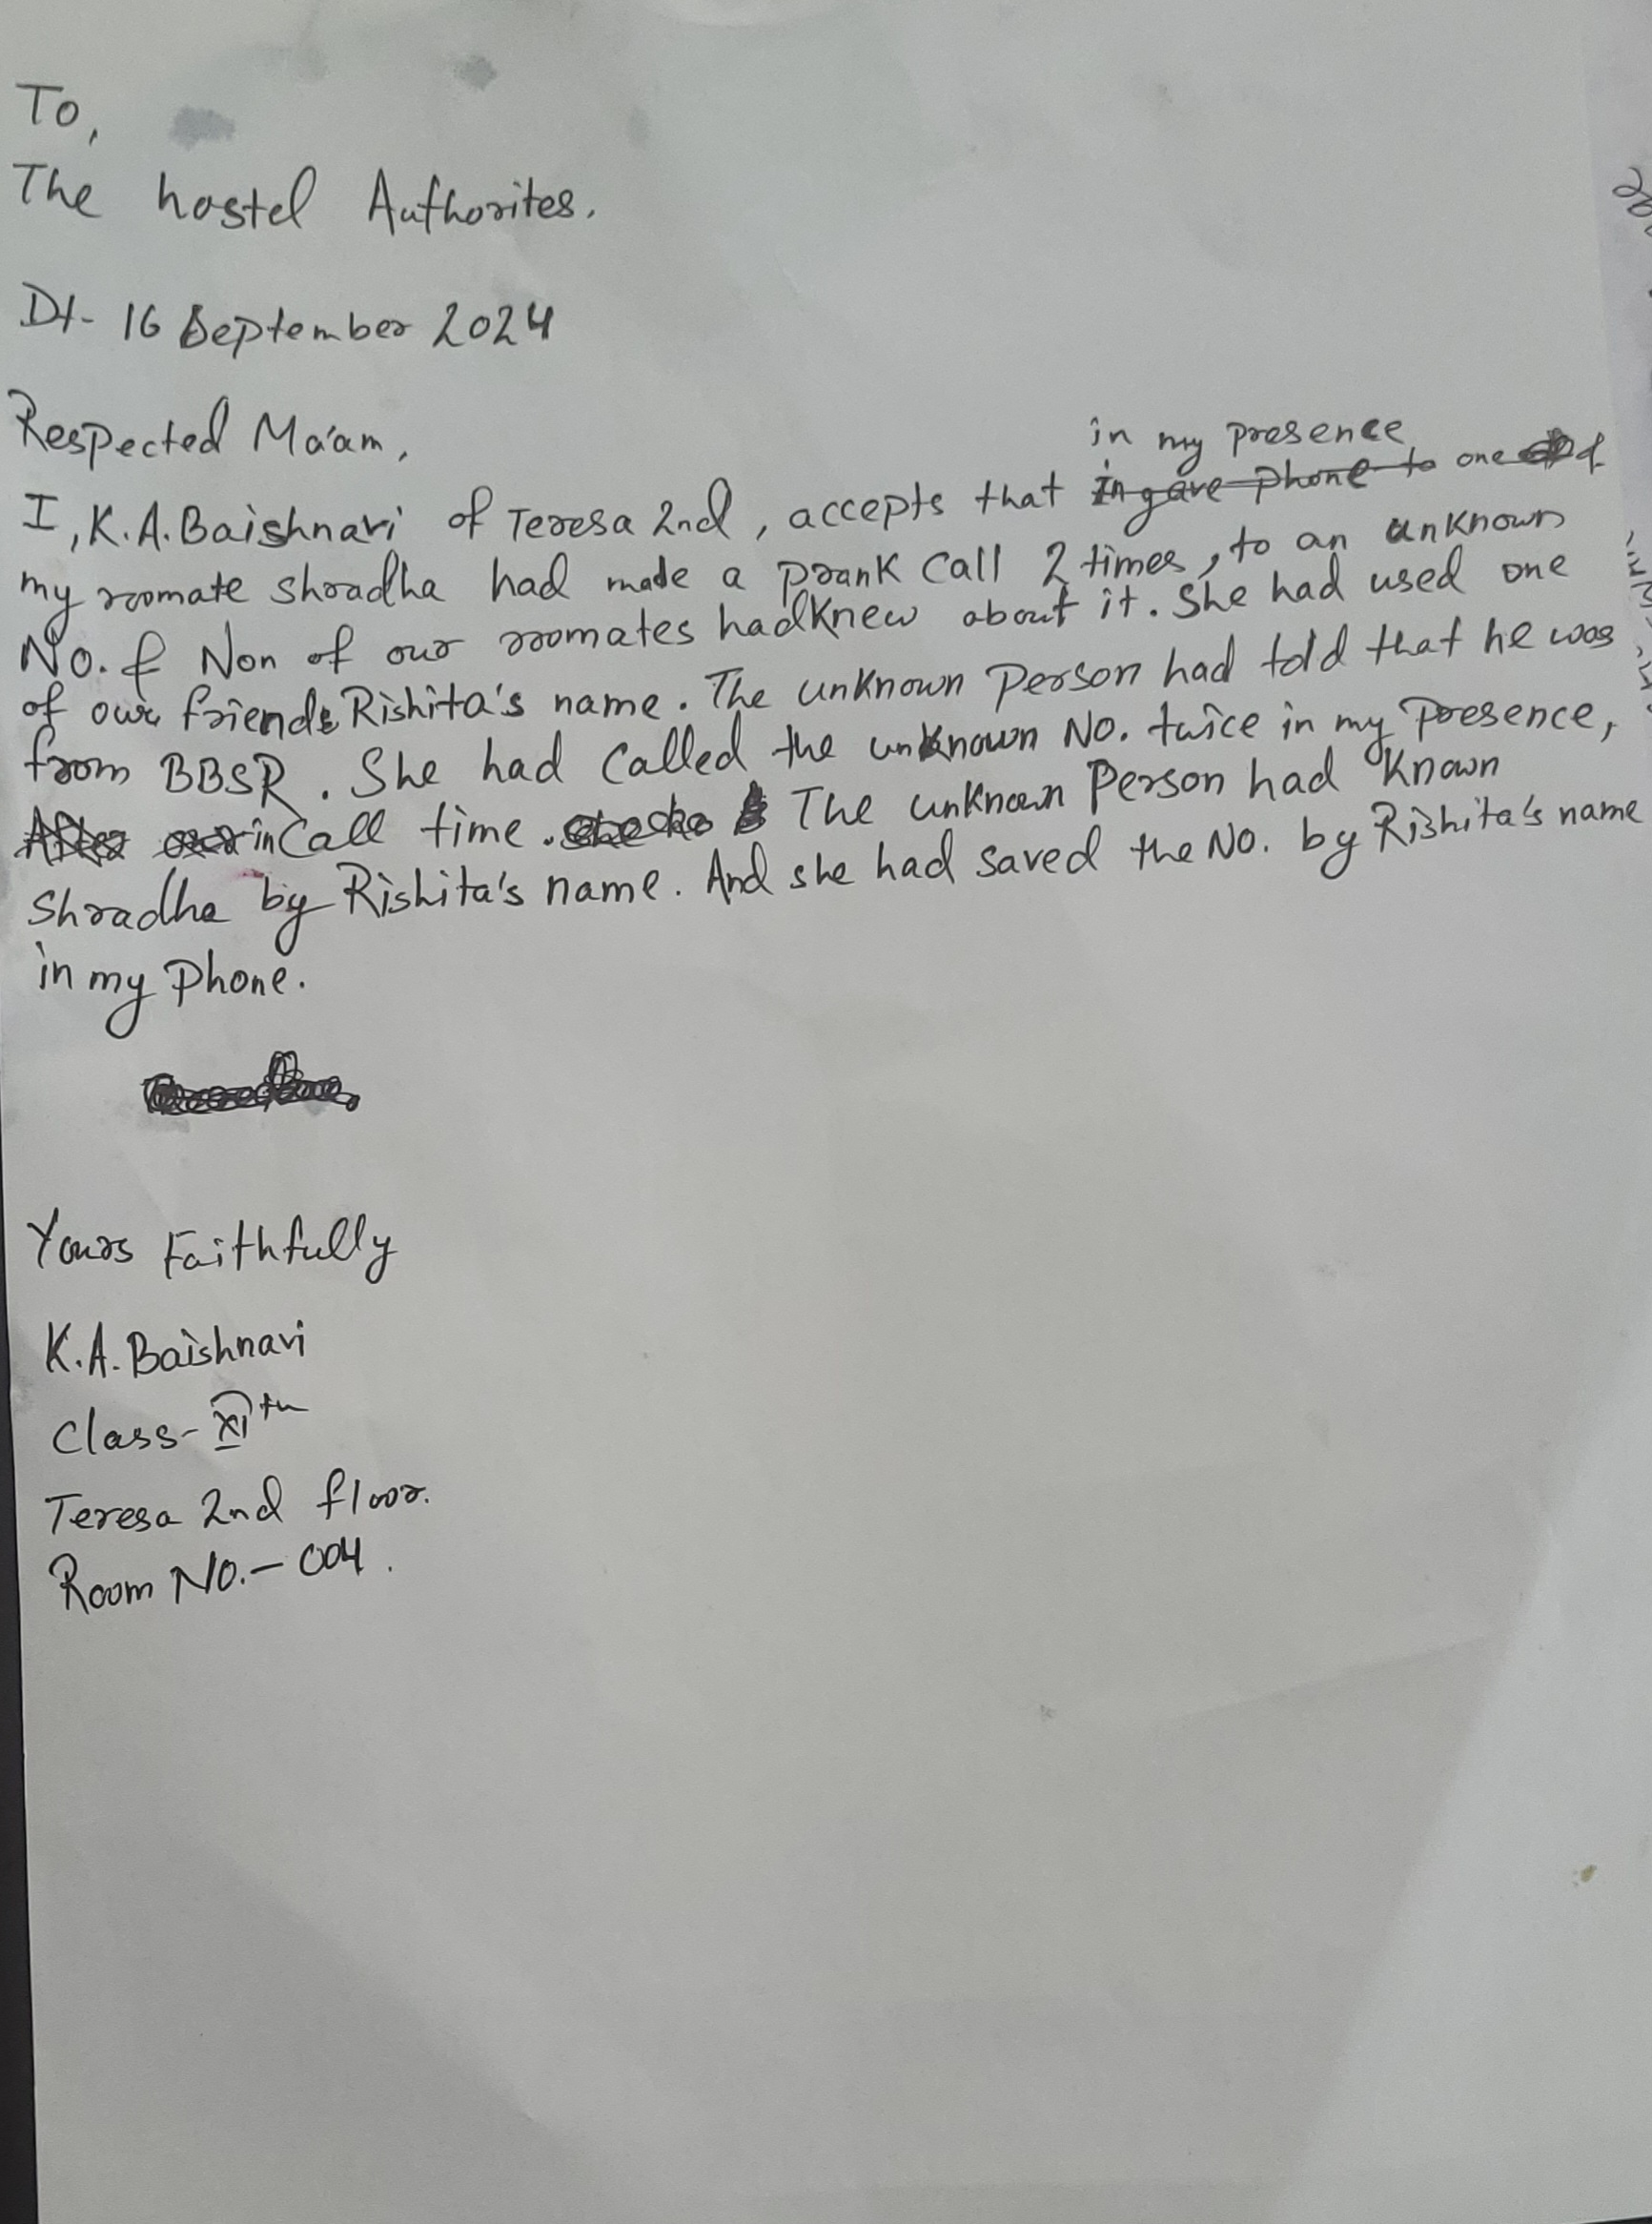 To,
The hostel Authorites.
Dt- 16 September 2024
Respected Ma'am,
in my presence
I, K.A. Baishnavi of Teresa 2nd, accepts that In gave phone to one of
my roomate Shradha had made a prank call 2 times, to an unknown
No. & Non of our roomates had knew about it. She had used one
of our friends Rishita's name. The unknown person had told that he was
from BBSR. She had called the unknown No. twice in my presence,
in call time. The unknown person had known
Shradha by Rishita's name. And she had saved the No. by Rishita's name
in my phone.
Yours Faithfully
K.A. Baishnavi
Class- XIth
Teresa 2nd floor.
Room No.- 004.